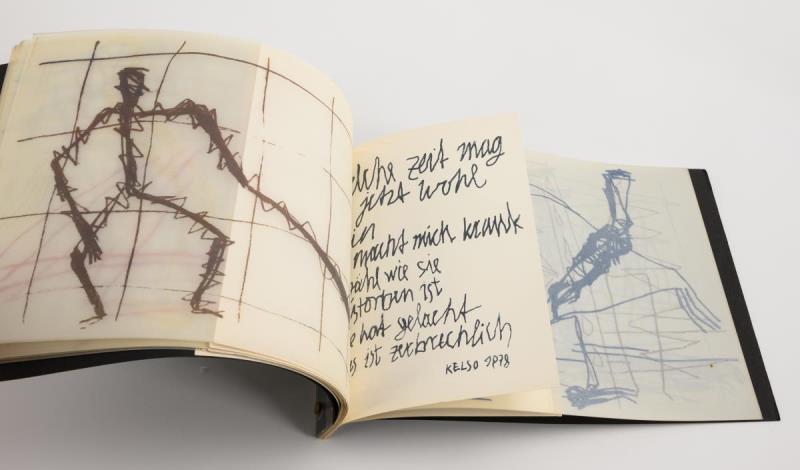 zeit mag
jetzt wohl
in
macht mich krank
wie sie
ist
hat gelacht
ist zerbrechlich
KELSO 1978